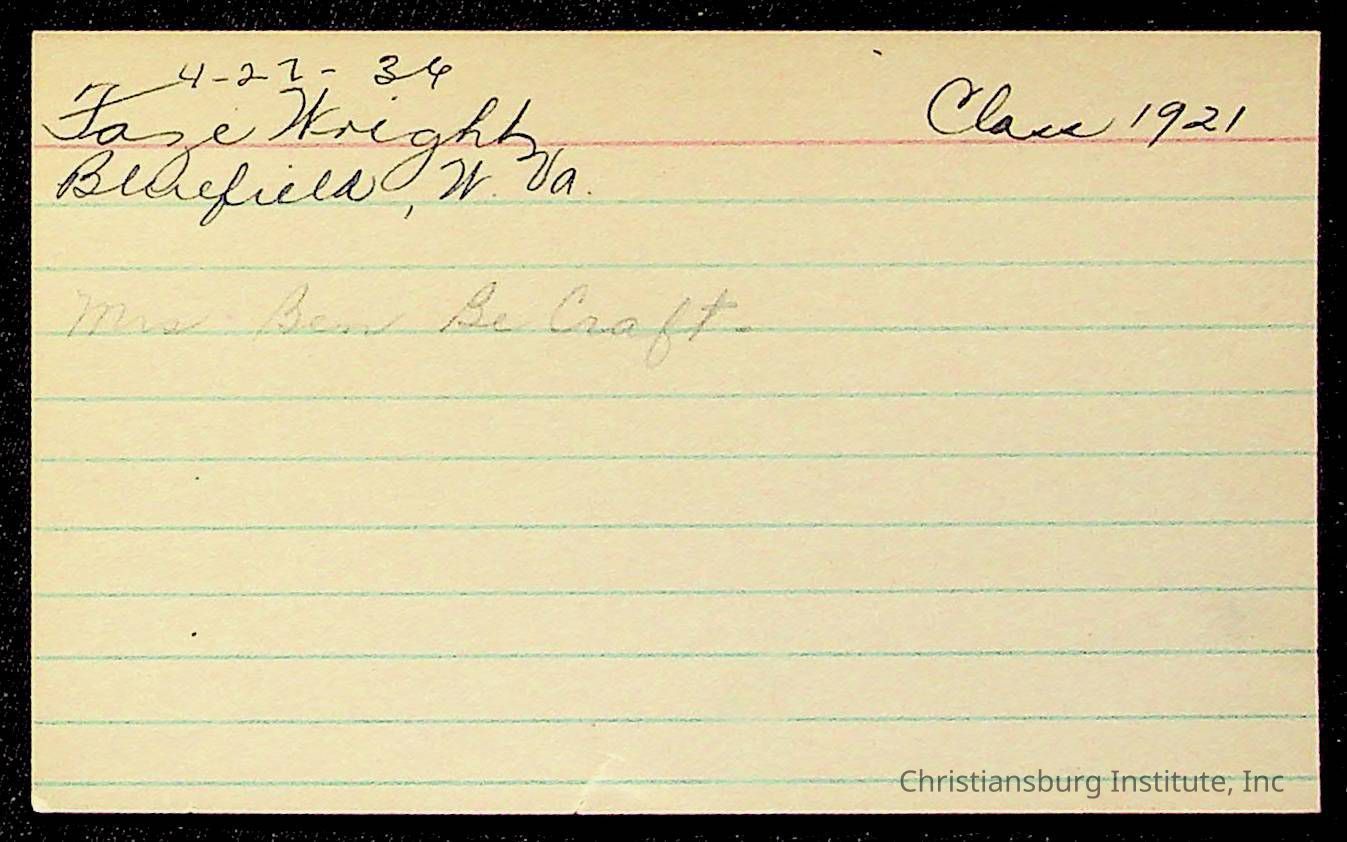 4-27-36
Faye Wright
Class 1921
Bluefield, W. Va.
Mrs. Ben Be Craft.
Christiansburg Institute, Inc